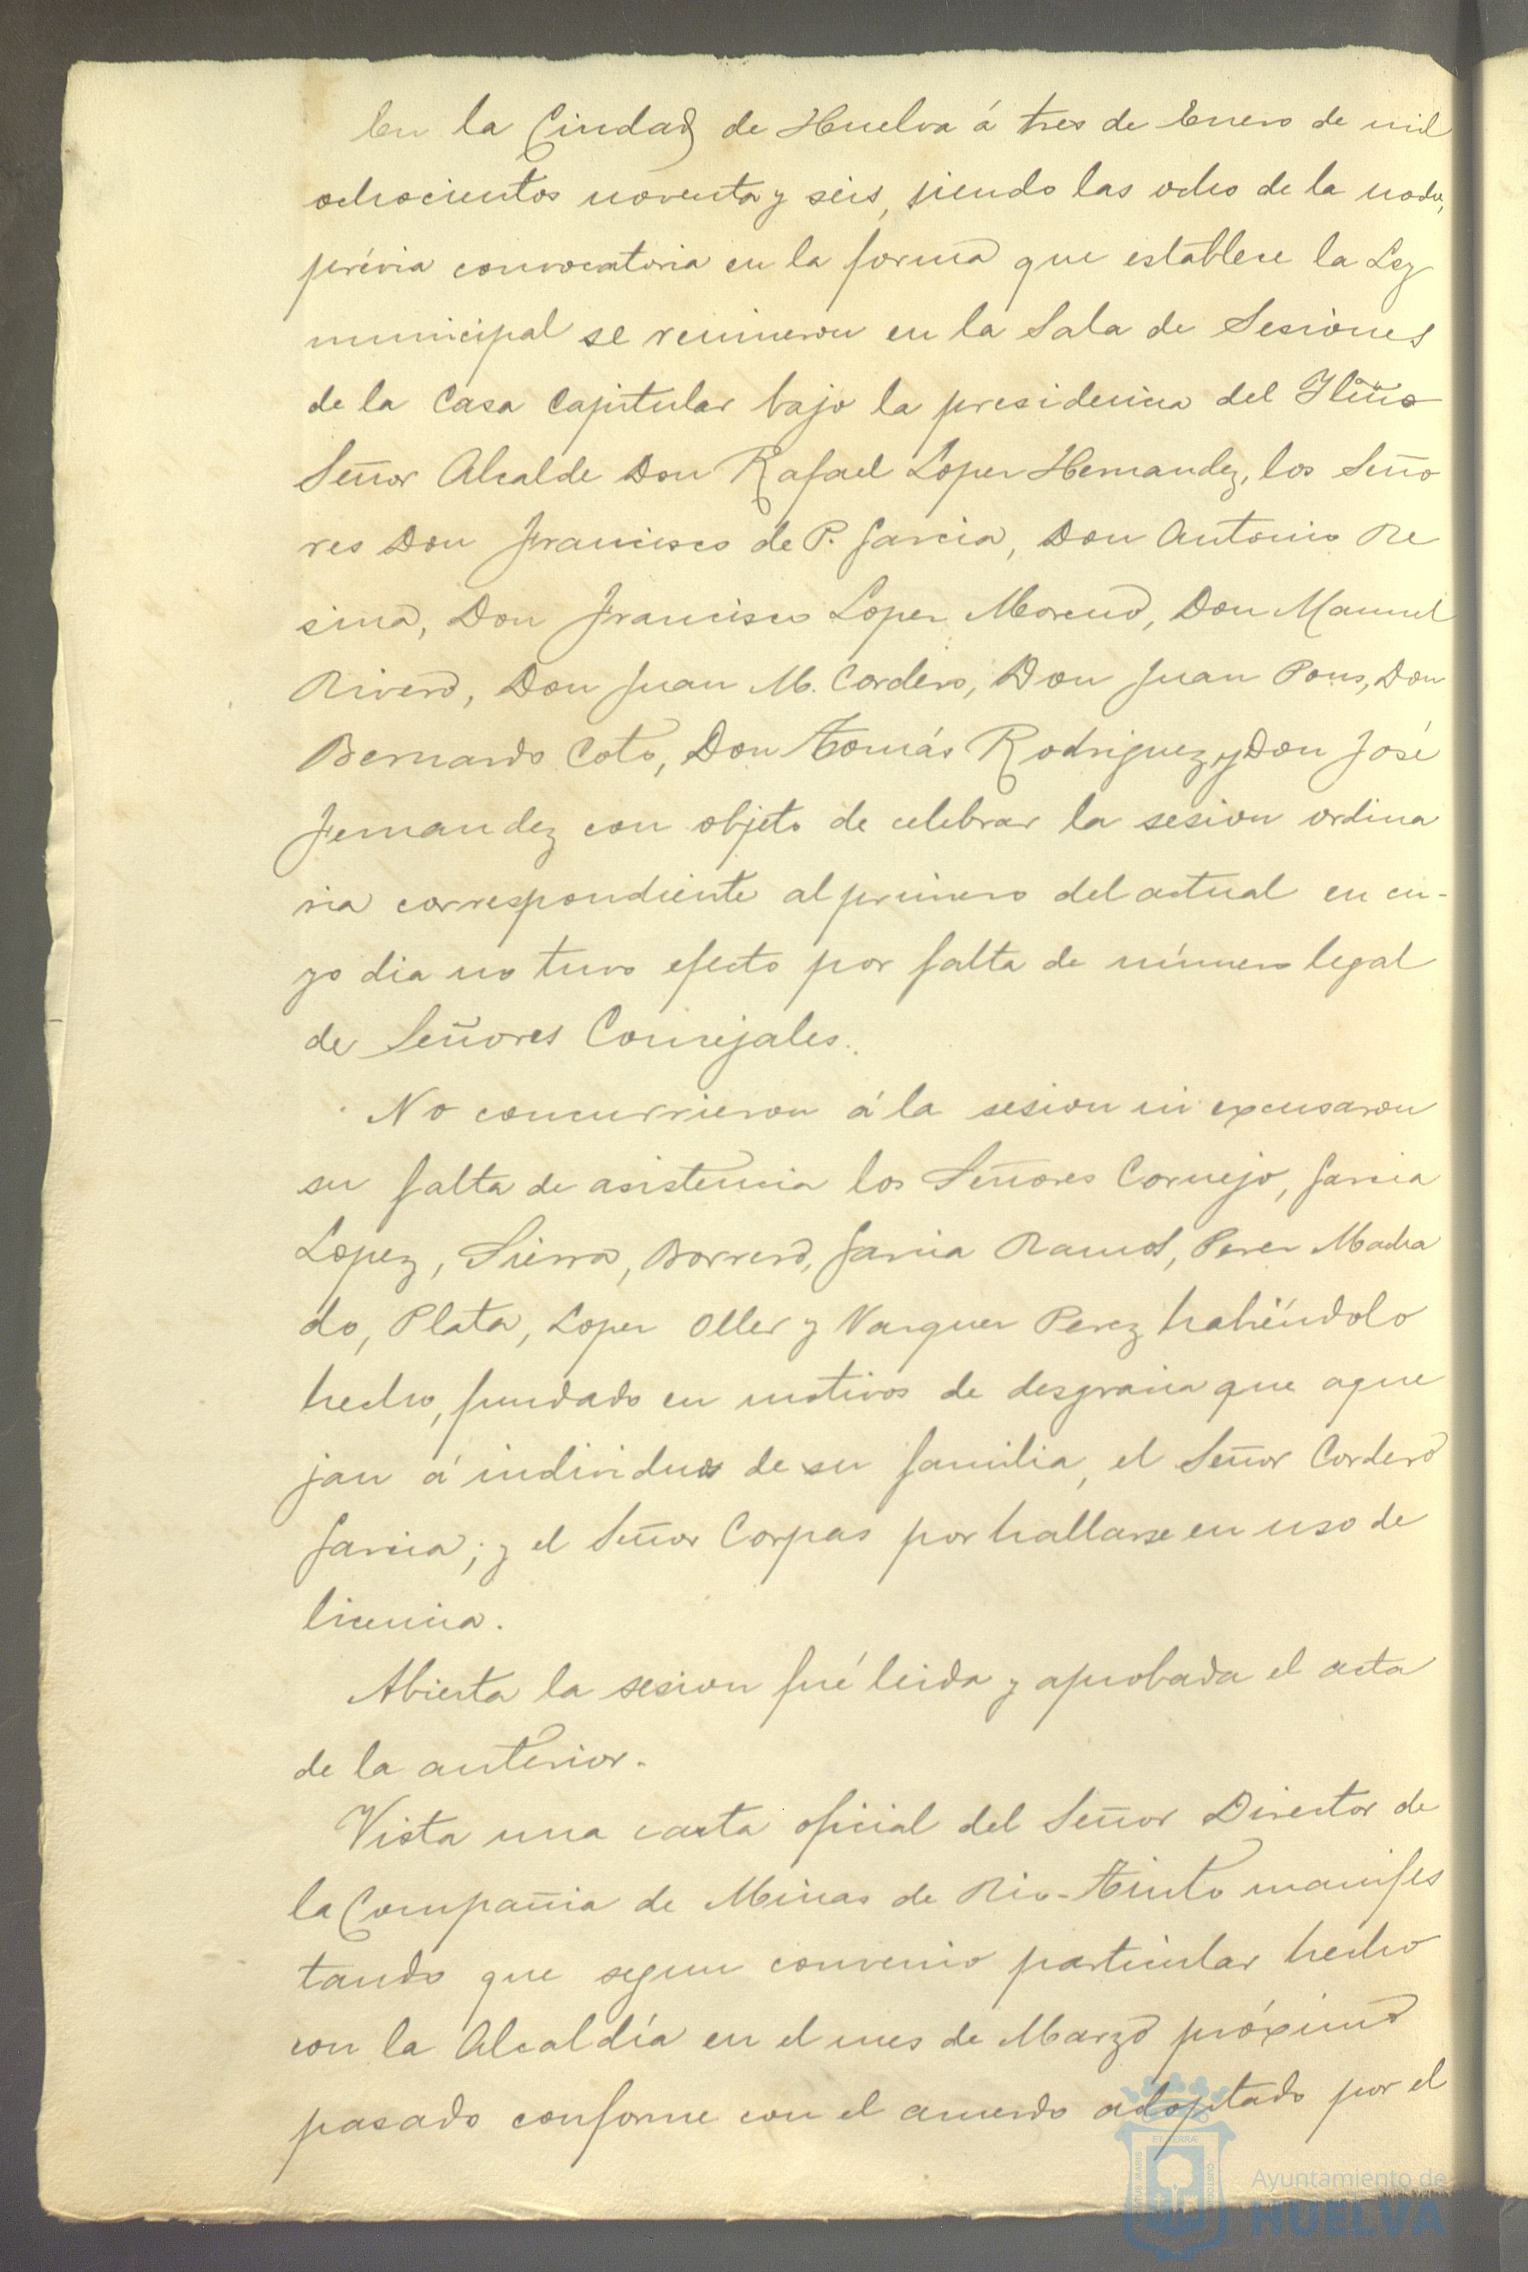 En la Ciudad de Huelva á tres de Enero de mil
ochocientos noventa y seis, siendo las ocho de la noche,
prévia convocatoria en la forma que establece la Ley
municipal se reunieron en la Sala de Sesiones
de la Casa Capitular bajo la presidencia del Iltmo
Señor Alcalde Don Rafael Lopez Hernandez, los Seño
res Don Francisco de P. Garcia, Don Antonio Re
sina, Don Francisco Lopez Moreno, Don Manuel
Rivero, Don Juan M. Cordero, Don Juan Pons, Don
Bernardo Coto, Don Tomás Rodriguez y Don José
Fernandez con objeto de celebrar la sesion ordina
ria correspondiente al primero del actual en cu-
yo dia no tuvo efecto por falta de número legal
de Señores Concejales.
No concurrieron á la sesion ni excusaron
su falta de asistencia los Señores Cornejo, Garcia
Lopez, Sierra, Borrero, Garcia Ramos, Perez Macha
do, Plata, Lopez Oller y Vazquez Perez habiéndolo
hecho, fundado en motivos de desgracia que aque
jan á individuos de su familia, el Señor Cordero
Garcia; y el Señor Corpas por hallarse en uso de
licencia.
Abierta la sesion fué leida y aprobada el acta
de la anterior.
Vista una carta oficial del Señor Director de
la Compañia de Minas de Rio-Tinto manifes
tando que segun convenio particular hecho
con la Alcaldía en el mes de Marzo próximo
pasado conforme con el acuerdo adoptado por el
Ayuntamiento de
HUELVA